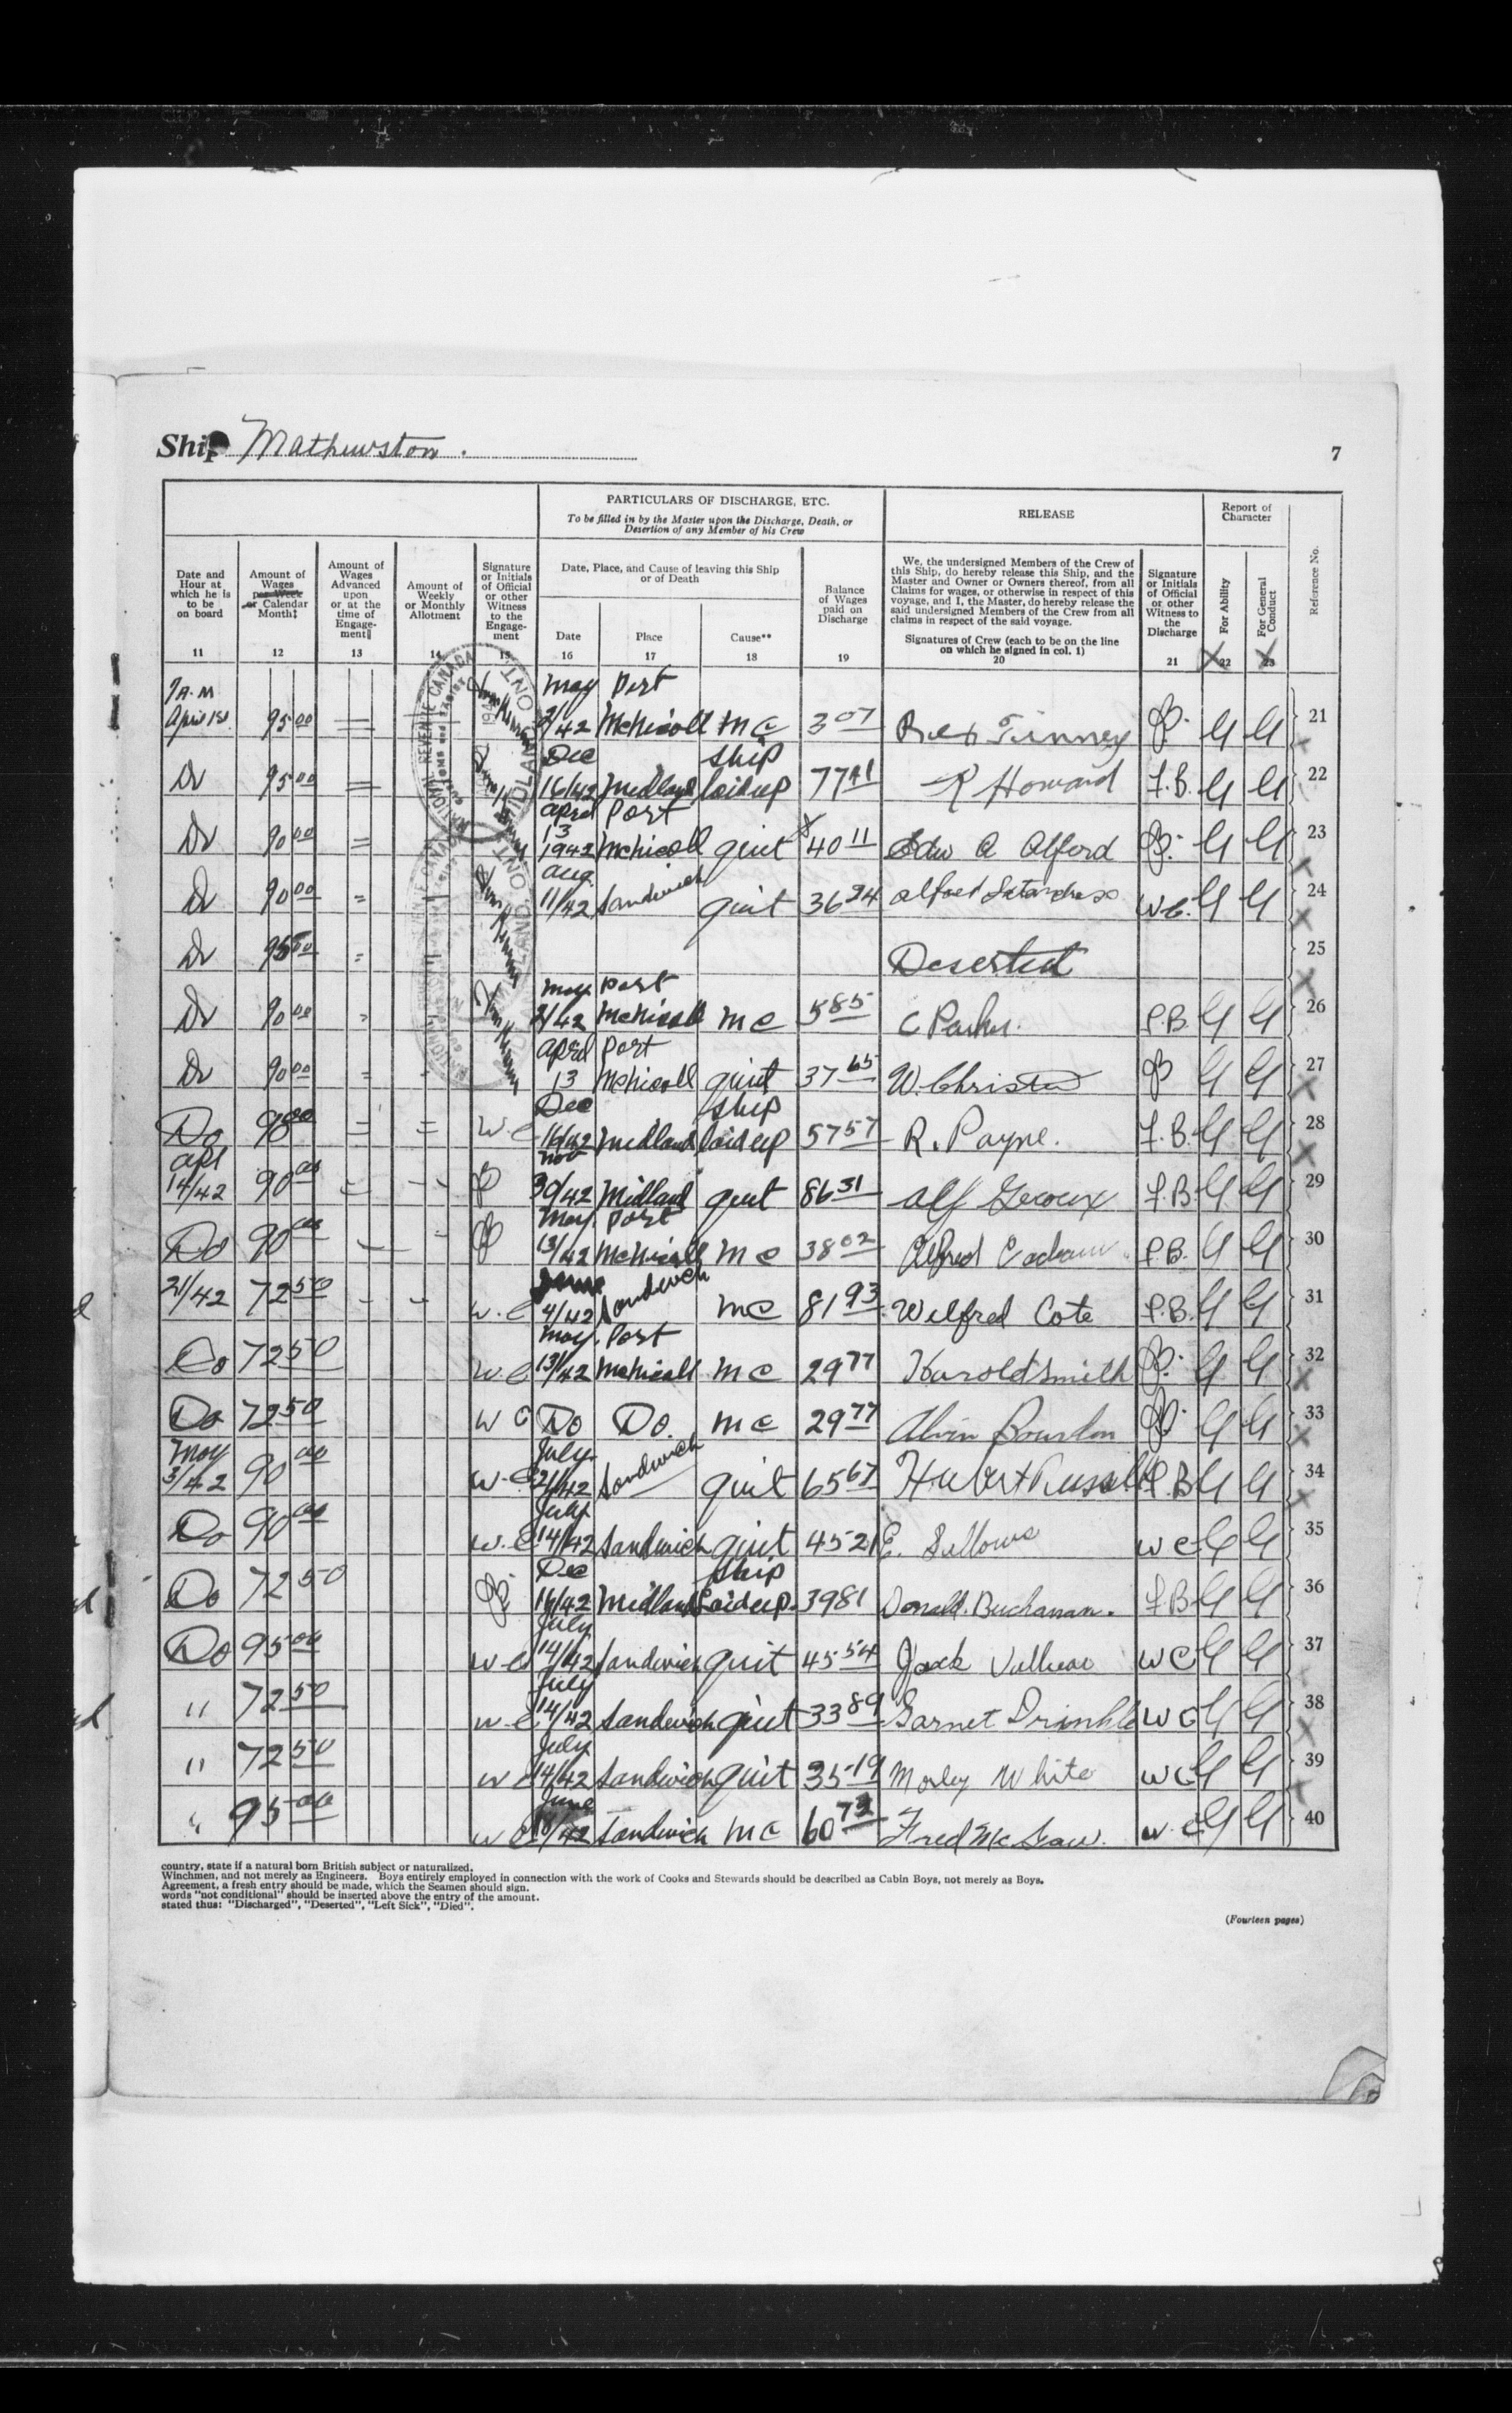 Ship Mathewston.
7
PARTICULARS OF DISCHARGE, ETC.
To be filled in by the Master upon the Discharge, Death, or
Desertion of any Member of his Crew
RELEASE
Report of
Character
Reference No.
Date and
Hour at
which he is
to be
on board
Amount of
Wages
per Week
or Calendar
Month‡
Amount of
Wages
Advanced
upon
or at the
time of
Engage-
ment‖
Amount of
Weekly
or Monthly
Allotment
Signature
or Initials
of Official
or other
Witness
to the
Engage-
ment
Date, Place, and Cause of leaving this Ship
or of Death
Date
Place
Cause**
Balance
of Wages
paid on
Discharge
We, the undersigned Members of the Crew of
this Ship, do hereby release this Ship, and the
Master and Owner or Owners thereof, from all
Claims for wages, or otherwise in respect of this
voyage, and I, the Master, do hereby release the
said undersigned Members of the Crew from all
claims in respect of the said voyage.
Signatures of Crew (each to be on the line
on which he signed in col. 1)
Signature
or Initials
of Official
or other
Witness to
the
Discharge
For Ability
For General
Conduct
11 12 13 14 15 16 17 18 19 20 21 22 23
7 A.M
April 1st 95 00 May 2/42 Port McNicoll M C 3 07 Tinney G G 21
Do 95 00 Dec 16/42 Midland Ship laid up 77 41 R Howard F.B. G G 22
Do 90 00 April 13 1942 Port McNicoll quit 40 11 Edw A Alford G G 23
Do 90 00 Aug 11/42 Sandwich quit 36 24 Alfred W.C. G G 24
Do 95 00 Deserted 25
Do 90 00 May 2/42 Port McNicoll M C 5 85 C Parker. P.B. G G 26
Do 90 00 April 13 Port McNicoll quit 37 65 W. Christie G G 27
Do 90 00 W.C Dec 16/42 Midland Ship laid up 57 57 R. Payne. F.B. G G 28
Apl 14/42 90 00 Nov 30/42 Midland quit 86 31 Alf Geroux F.B G G 29
Do 90 00 May 13/42 Port McNicoll M C 38 02 Alfred P.B. G G 30
21/42 72 50 W.C June 4/42 Sandwich M C 81 93 Wilfred Cote P.B. G G 31
Do 72 50 W.C May 13/42 Port McNicoll M C 29 77 Harold Smith G G 32
Do 72 50 W C Do Do. M C 29 77 Alvin Bourdon G G 33
May 3/42 90 00 W.C July 21/42 Sandwich quit 65 67 Hubert Russell P.B G G 34
Do 90 00 W.C July 14/42 Sandwich quit 45 21 E. Sellows W C G G 35
Do 72 50 Dec 16/42 Midland Ship Laid up. 39 81 Donald. Buchanan. F.B G G 36
Do 95 00 W C July 14/42 Sandwich quit 45 54 Jack W C G G 37
" 72 50 W.C July 14/42 Sandwich quit 33 89 Garnet W C G G 38
" 72 50 W C July 14/42 Sandwich quit 35 19 Morley White W C G G 39
" 95 00 W C June 18/42 Sandwich M C 60 Fred W.C G G 40
country, state if a natural born British subject or naturalized.
Winchmen, and not merely as Engineers. Boys entirely employed in connection with the work of Cooks and Stewards should be described as Cabin Boys, not merely as Boys.
Agreement, a fresh entry should be made, which the Seamen should sign.
words "not conditional" should be inserted above the entry of the amount.
stated thus: "Discharged", "Deserted", "Left Sick", "Died".
(Fourteen pages)